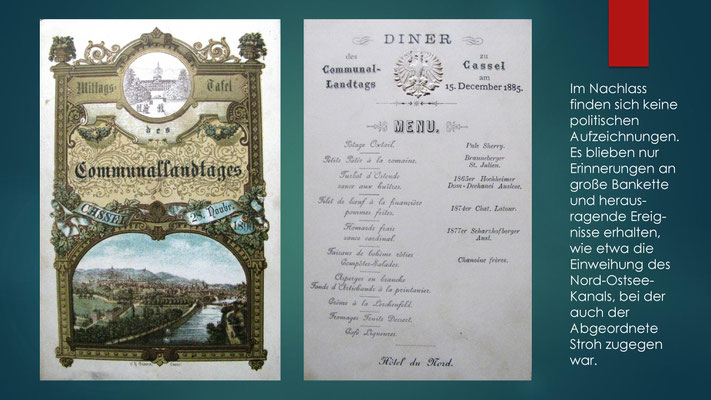 Mittags- Tafel
des
Communallandtages
CASSEL
DINER
des
Communal-
Landtags
zu
Cassel
am
15. December 1885.
MENU.
Potage Oxtail.
Pale Sherry.
Petits Patés à la romaine.
Brauneberger
St. Julien.
Turbot d'Ostende
sauce aux huîtres.
1865er Hochheimer
Dom-Dechanei Auslese.
Filet de bœuf à la financière
pommes frites.
1874er Chat. Latour.
Homards frais
sauce cardinal
1877er Scharzhofberger
Ausl.
Faisans de bohème rôties
Compôtes-Salades.
Chanoine frères.
Asperges en branche
Fonds d'Artichauds à la printanier.
Crème à la Lerchenfeld.
Fromages Fruits Dessert.
Café Liqueures.
Hôtel du Nord.
Im Nachlass
finden sich keine
politischen
Aufzeichnungen.
Es blieben nur
Erinnerungen an
große Bankette
und heraus-
ragende Ereig-
nisse erhalten,
wie etwa die
Einweihung des
Nord-Ostsee-
Kanals, bei der
auch der
Abgeordnete
Stroh zugegen
war.